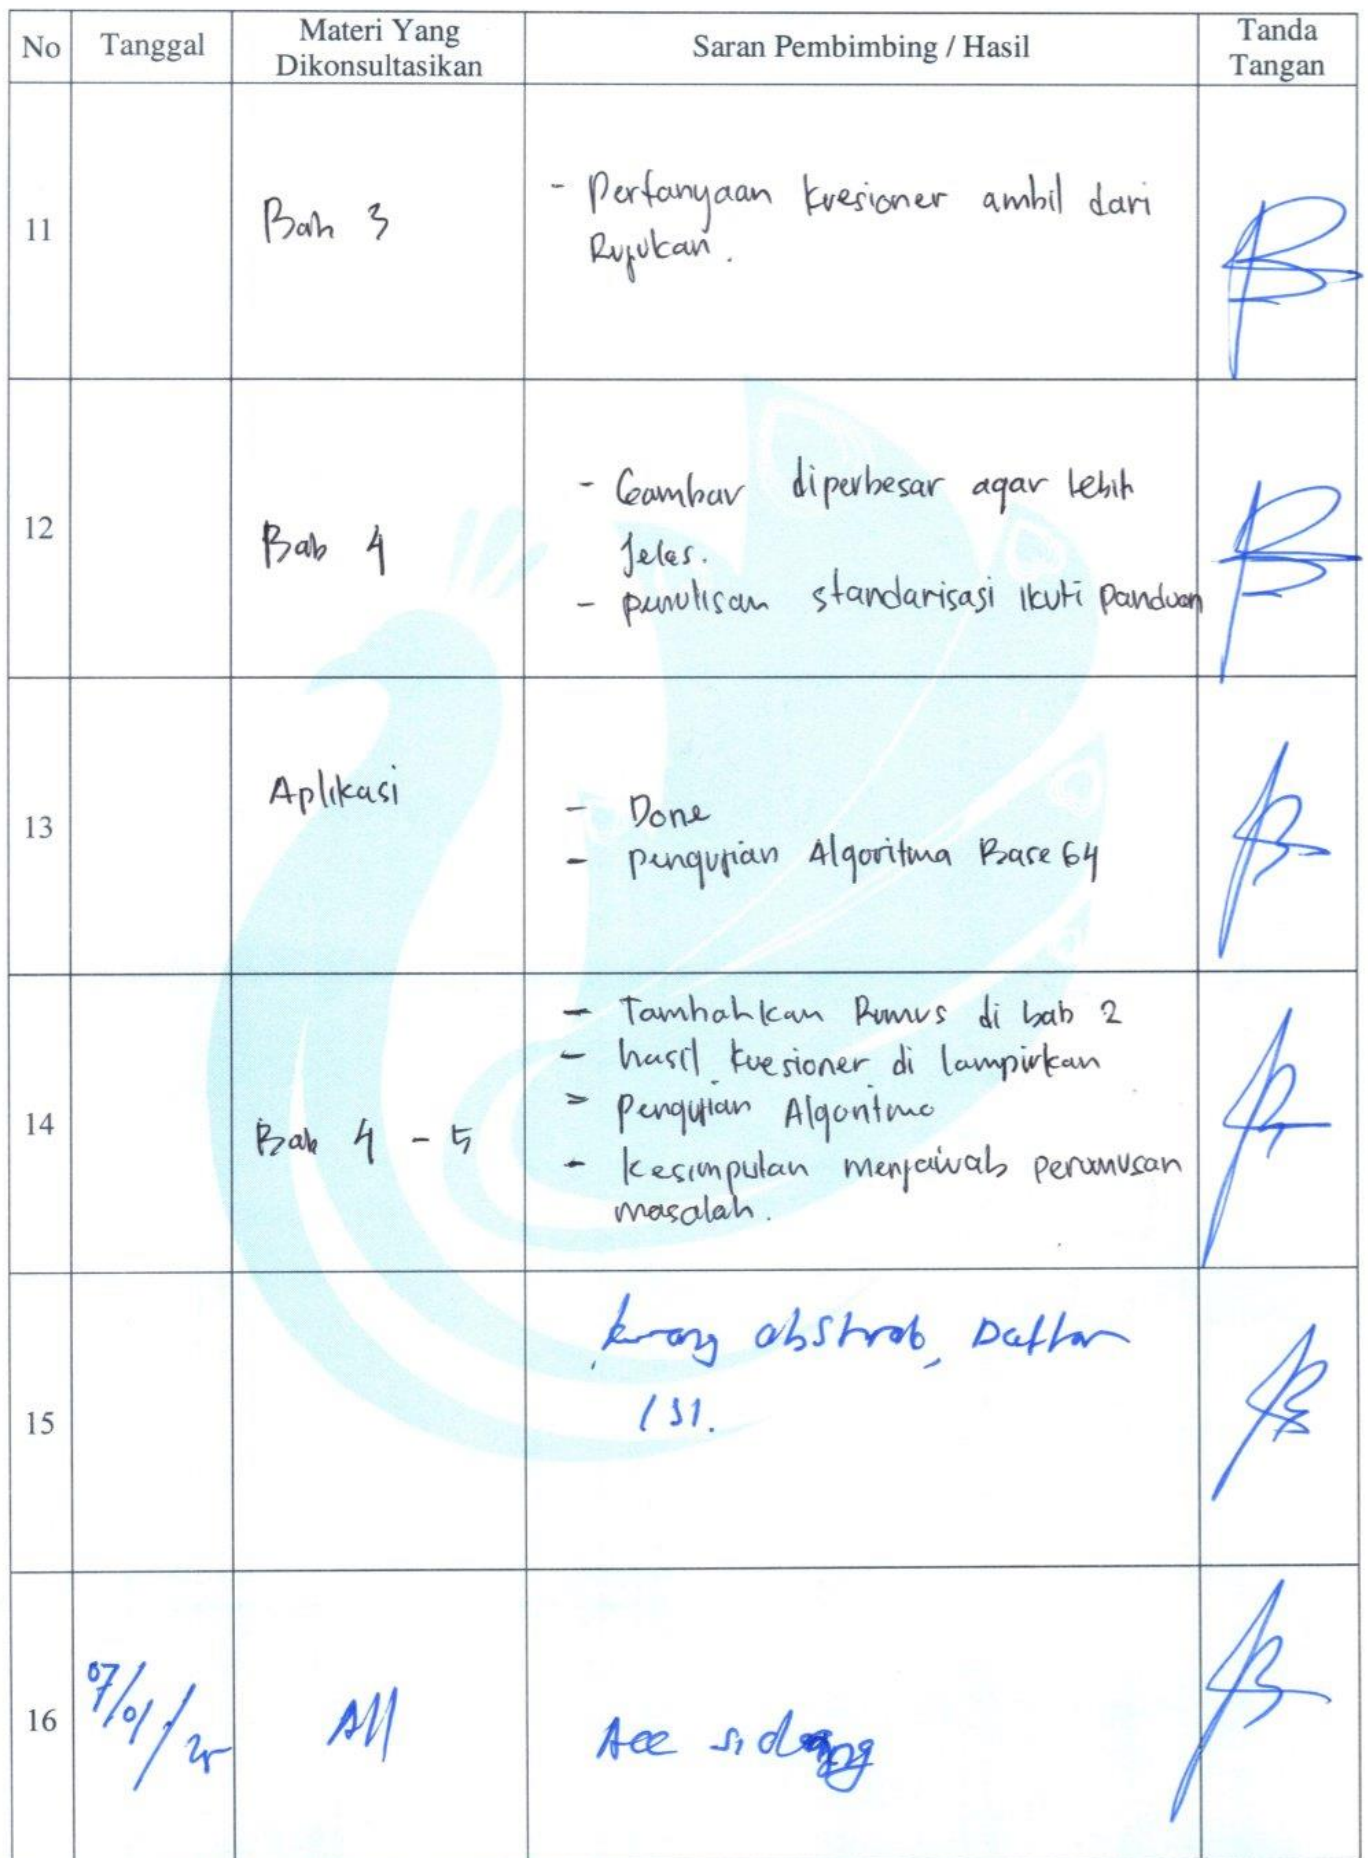 No Tanggal Materi Yang Dikonsultasikan Saran Pembimbing / Hasil Tanda Tangan
11 Bab 3
- Pertanyaan kuesioner ambil dari
Rujukan.
12 Bab 4
- Gambar diperbesar agar lebih
Jelas.
- penulisan standarisasi ikuti panduan
13 Aplikasi
- Done
- pengujian Algoritma Base 64
14 Bab 4 - 5
- Tambahkan Rumus di bab 2
- hasil kuesioner di lampirkan
- Pengujian Algoritma
- kesimpulan menjawab perumusan
masalah.
15
kurang abstrak, Daftar
Isi.
16 07/01/25 All Acc sidang